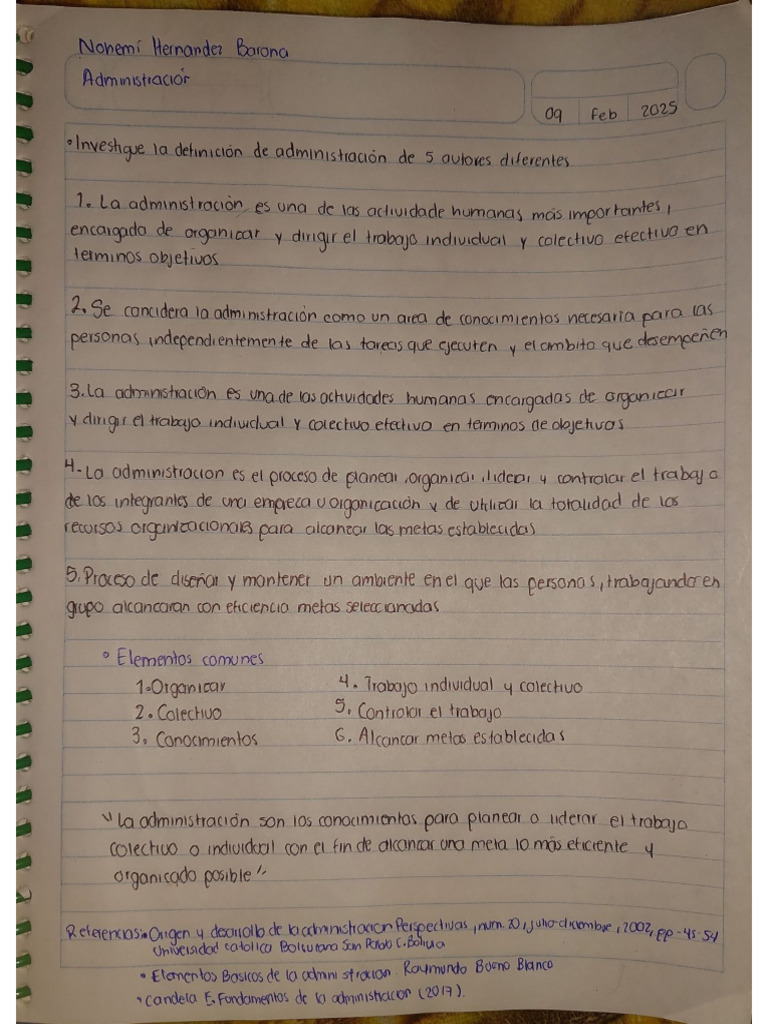 Nohemí Hernandez Barona
Administración
09 Feb 2025
• Investigue la definición de administración de 5 autores diferentes
1. La administración, es una de las actividade humanas más importantes,
encargada de organicar y dirigir el trabajo individual y colectivo efectivo en
terminos objetivos
2. Se concidera la administración como un area de conocimientos necesaria para las
personas independientemente de las tareas que ejecuten y el ambito que desempeñen
3. La administración es una de las actividades humanas encargadas de organicar
y dirigir el trabajo individual y colectivo efectivo en terminos de objetivos
4- La administracion es el proceso de planear, organicar, lidear y controlar el trabajo
de los integrantes de una empreca u organicación y de utilizar la totalidad de los
recursos organizacionales para alcancar las metas establecidas
5. Proceso de diseñar y mantener un ambiente en el que las personas, trabajando en
grupo alcancaran con eficiencia metas seleccionadas
• Elementos comunes
1-Organicar
4. Trabajo individual y colectivo
2. Colectivo
5. Controlar el trabajo
3. Conocimientos
6. Alcancar metas establecidas
"La administración son los conocimientos para planear o liderar el trabajo
colectivo o individual con el fin de alcancar una meta lo más eficiente y
organicado posible"
Referencias • Origen y desarollo de la administracion Perspectivas, num. 20, julio-diciembre, 2002, pp-45-54
Universidad catolica Boliviana San Pablo C. Bolivia
• Elementos Basicos de la administracion Raymundo Bueno Blanco
• Candela E. Fundamentos de la administracion (2017).